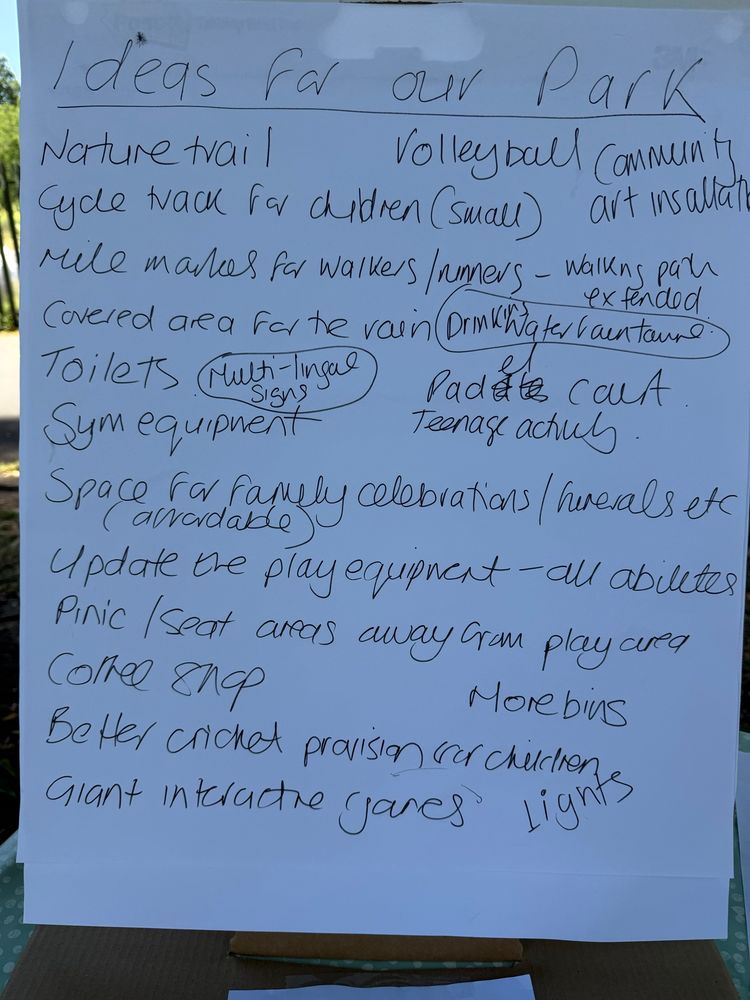 Ideas for our Park
Nature trail
Volleyball
Community
art insallatn
Cycle track for children (small)
Mile markes for walkers/runners - walkng path
extended
Covered area for the rain
Drinking Water Fauntaune
Toilets
Multi-lingal
signs
Paddel Court.
Teenage activity.
Gym equipment
Space for family celebrations/funerals etc
(affordable)
Update the play equipment - all abilites
Pinic/Seat areas away from play area
Coffee shop
More bins
Better cricket provision for children
Giant interactive games
Lights